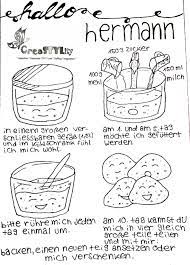 hallo
hermann
CreaSTYLity
zucker
100g
mehl
150 ml
milch
in einem großen ver-
schließbaren gefäß
und im kühlschrank fühl
ich mich wohl.
am 1. und am 5. tag
möchte ich gefüttert
werden.
bitte rührt mich jeden
tag einmal um.
am 10. tag kannst du
mich in vier gleich
große teile teilen
und mit mir:
backen, einen neuen teig ansetzen oder
mich verschenken.